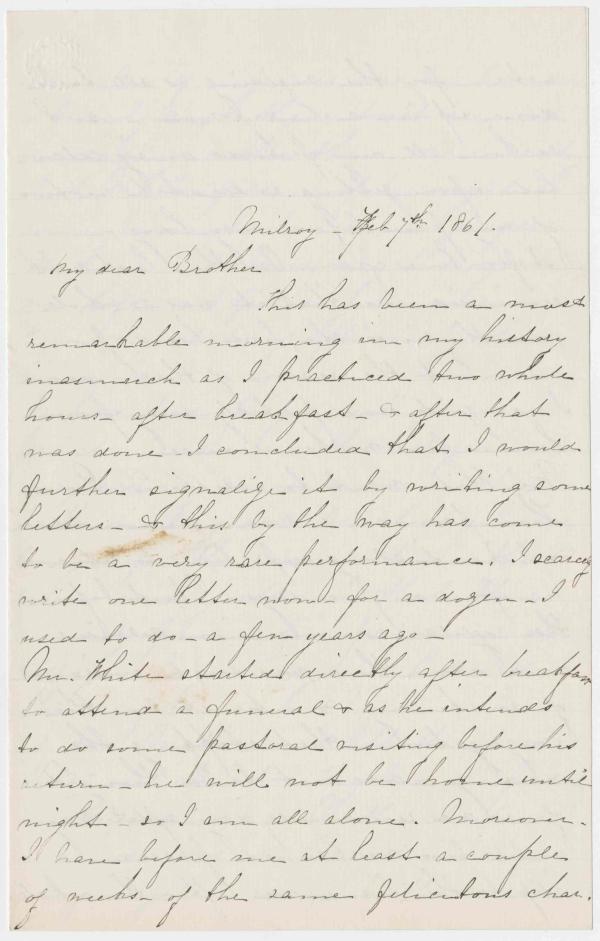 Milroy - Feb 7th 1861.
My dear Brother
This has been a most
remarkable morning in my history
inasmuch as I practiced two whole
hours - after breakfast - & after that
was done - I concluded that I would
further signalize it by writing some
letters - & this by the way has come
to be a very rare performance. I scarcely
write one letter now - for a dozen - I
used to do - a few years ago -
Mr. White started directly after breakfast
to attend a funeral & as he intends
to do some pastoral visiting before his
return - he will not be home until
night - so I am all alone. Moreover -
I have before me at least a couple
of weeks - of the same felicitous char.